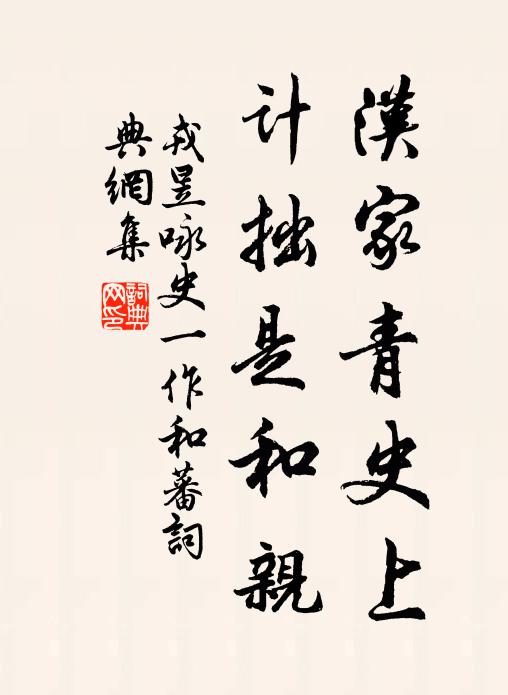 漢家青史上
计拙是和親
戎昱咏史一作和蕃詞
典網集
詞典網印